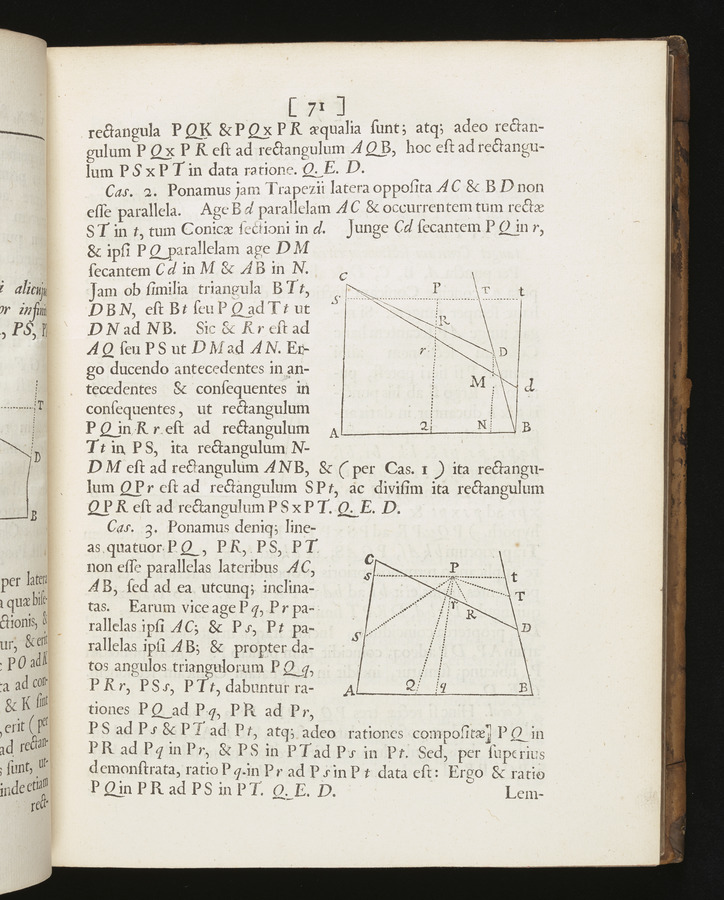 [ 71 ]
rectangula PQK & PQ x PR æqualia sunt; atq; adeo rectan-
gulum PQ x PR est ad rectangulum AQB, hoc est ad rectangu-
lum PS x PT in data ratione. Q. E. D.
Cas. 2. Ponamus jam Trapezii latera opposita AC & BD non
esse parallela. Age Bd parallelam AC & occurrentem tum rectæ
ST in t, tum Conicæ sectioni in d. Junge Cd secantem PQ in r,
& ipsi PQ parallelam age DM
secantem Cd in M & AB in N.
Jam ob similia triangula BTt,
DBN, est Bt seu PQ ad Tt ut
DN ad NB. Sic & Rr est ad
AQ seu PS ut DM ad AN. Er-
go ducendo antecedentes in an-
tecedentes & consequentes in
consequentes, ut rectangulum
PQ in Rr est ad rectangulum
Tt in PS, ita rectangulum N-
DM est ad rectangulum ANB, & ( per Cas. 1 ) ita rectangu-
lum QPr est ad rectangulum SPt, ac divisim ita rectangulum
QPR est ad rectangulum PS x PT. Q. E. D.
Cas. 3. Ponamus deniq; line-
as quatuor PQ, PR, PS, PT
non esse parallelas lateribus AC,
AB, sed ad ea utcunq; inclina-
tas. Earum vice age Pq, Pr pa-
rallelas ipsi AC; & Ps, Pt pa-
rallelas ipsi AB; & propter da-
tos angulos triangulorum PQq,
PRr, PSs, PTt, dabuntur ra-
tiones PQ ad Pq, PR ad Pr,
PS ad Ps & PT ad Pt, atq; adeo rationes compositæ PQ in
PR ad Pq in Pr, & PS in PT ad Ps in Pt. Sed, per superius
demonstrata, ratio Pq in Pr ad Ps in Pt data est: Ergo & ratio
PQ in PR ad PS in PT. Q. E. D.
Lem-
C
S
P
T
t
R
r
D
M
d
A
2
N
B
C
s
P
t
T
r
R
S
D
A
Q
q
B
i alicuju
or infini
, PS, P
T
D
B
per latera
a quæ bise-
ctionis, &
ur, & erit
PO ad K
ta ad con-
& K sint
, erit ( per
ad rectan-
s sunt, ut-
inde etiam
rect-